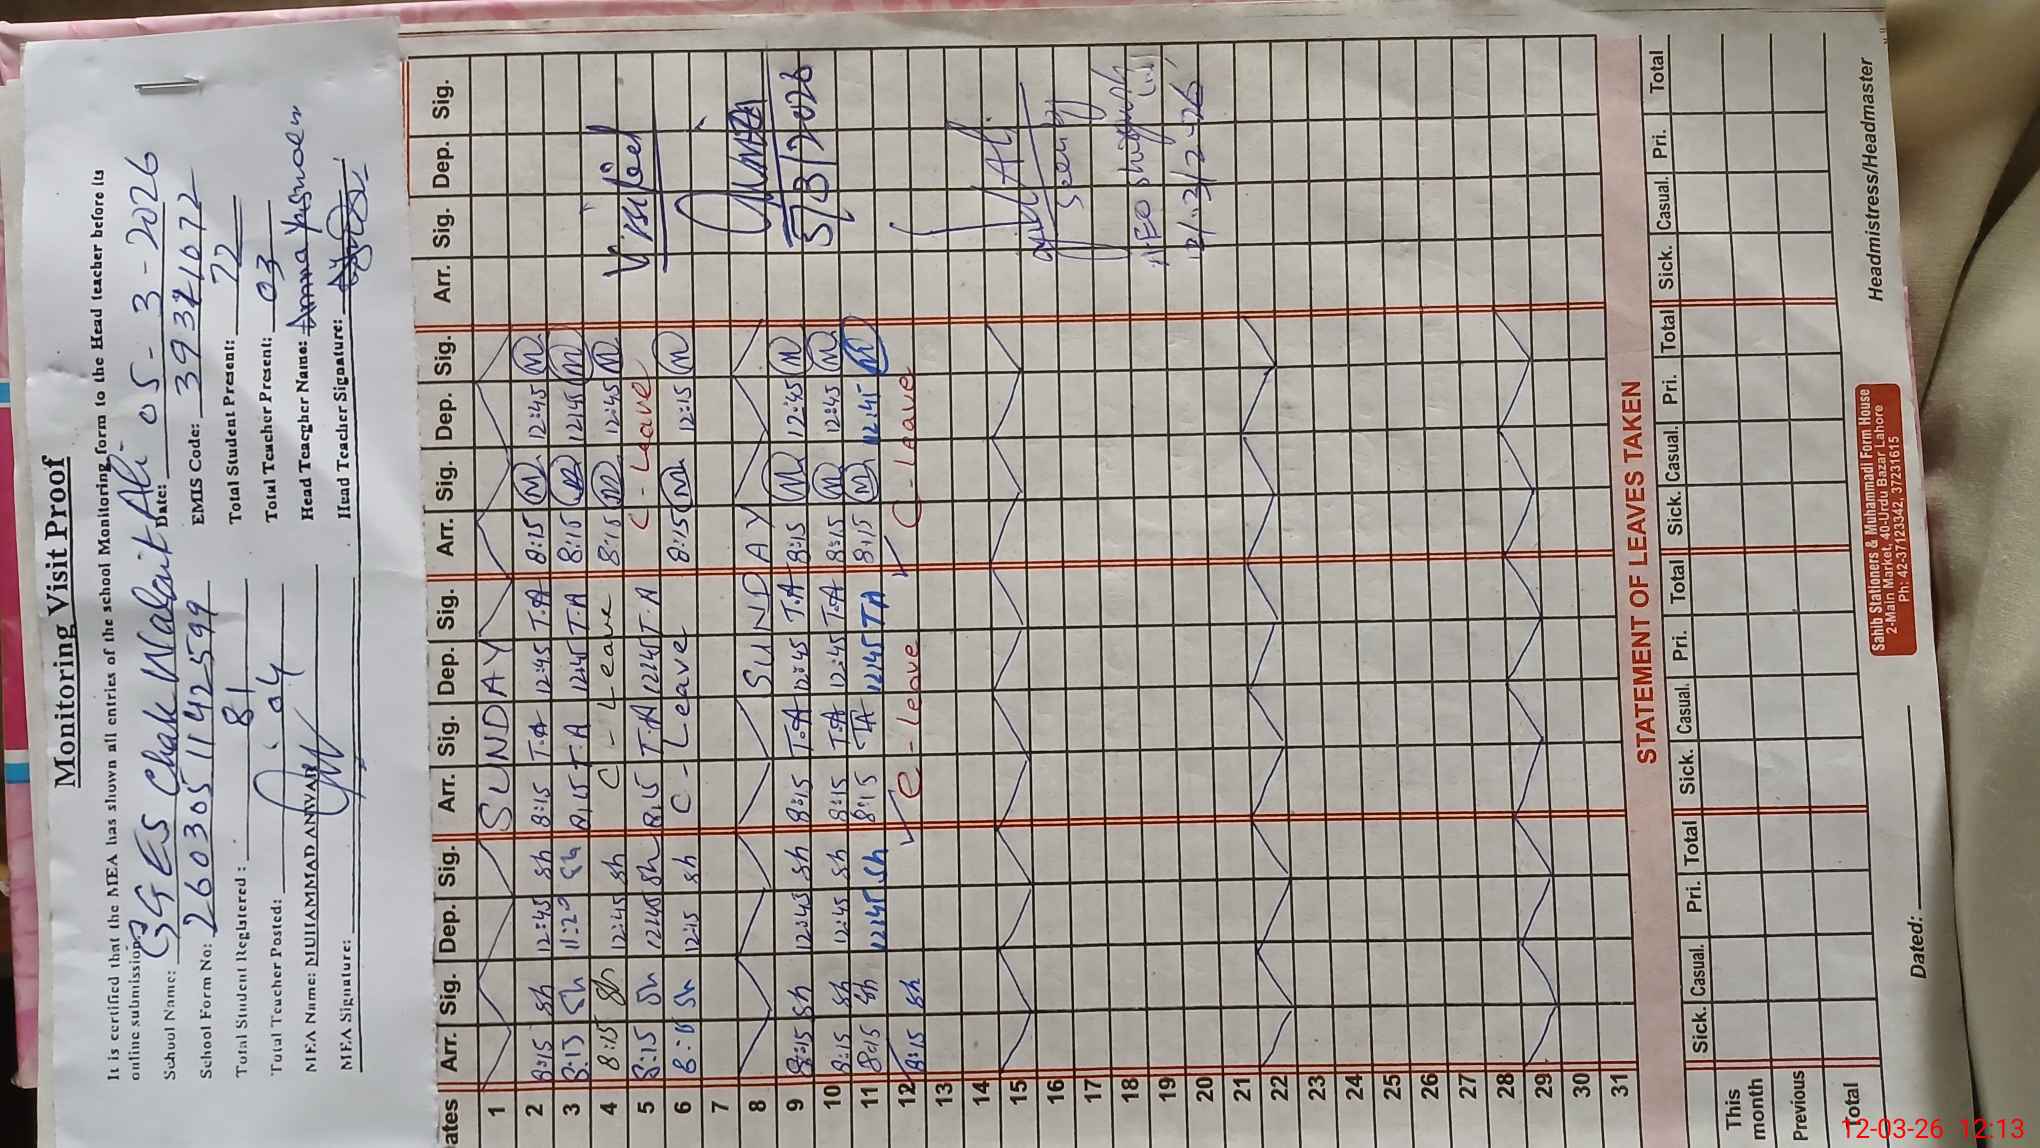 Monitoring Visit Proof
It is certified that the MEA has shown all entries of the school Monitoring form to the Head teacher before its
online submission
School Name: GGES Chak Walait Ali Date: 05-3-2026
School Form No: 260305114 2599 EMIS Code: 39321072
Total Student Registered: 81 Total Student Present: 72
Total Teacher Posted: 04 Total Teacher Present: 03
MEA Name: MUHAMMAD ANWAR Head Teacher Name:
MEA Signature: Head Teacher Signature:
ates Arr. Sig. Dep. Sig. Arr. Sig. Dep. Sig. Arr. Sig. Dep. Sig. Arr. Sig. Dep. Sig.
1 SUNDAY
2 8:15 Sh 12:45 Sh 8:15 T.A 12:45 T.A 8:15 M 12:45 M
3 8:15 Sh 11:20 Sh 8:15 T.A 12:45 T.A 8:15 M 12:45 M
4 8:15 Sh 12:45 Sh C - Leave 8:15 M 12:45 M
5 8:15 Sh 12:45 Sh 8:15 T.A 12:45 T.A C - Leave
Visited
6 8:15 Sh 12:15 Sh C - Leave 8:15 M 12:15 M
7
8 SUNDAY
9 8:15 Sh 12:45 Sh 8:15 T.A 12:45 T.A 8:15 M 12:45 M
5/3/2026
10 8:15 Sh 12:45 Sh 8:15 T.A 12:45 T.A 8:15 M 12:45 M
11 8:15 Sh 12:45 Sh 8:15 T.A 12:45 T.A 8:15 M 12:45 M
12 8:15 Sh C - Leave C - Leave
13
14
15
16
17
18
19
20
21
22
23
24
25
26
27
28
29
30
31
STATEMENT OF LEAVES TAKEN
Sick. Casual. Pri. Total Sick. Casual. Pri. Total Sick. Casual. Pri. Total Sick. Casual. Pri. Total
This month
Previous
Total
Dated:
Sahib Stationers & Muhammadi Form House
2-Main Market, 40-Urdu Bazar Lahore
Ph: 42-37123342, 37231615
Headmistress/Headmaster
12-03-26 12:13